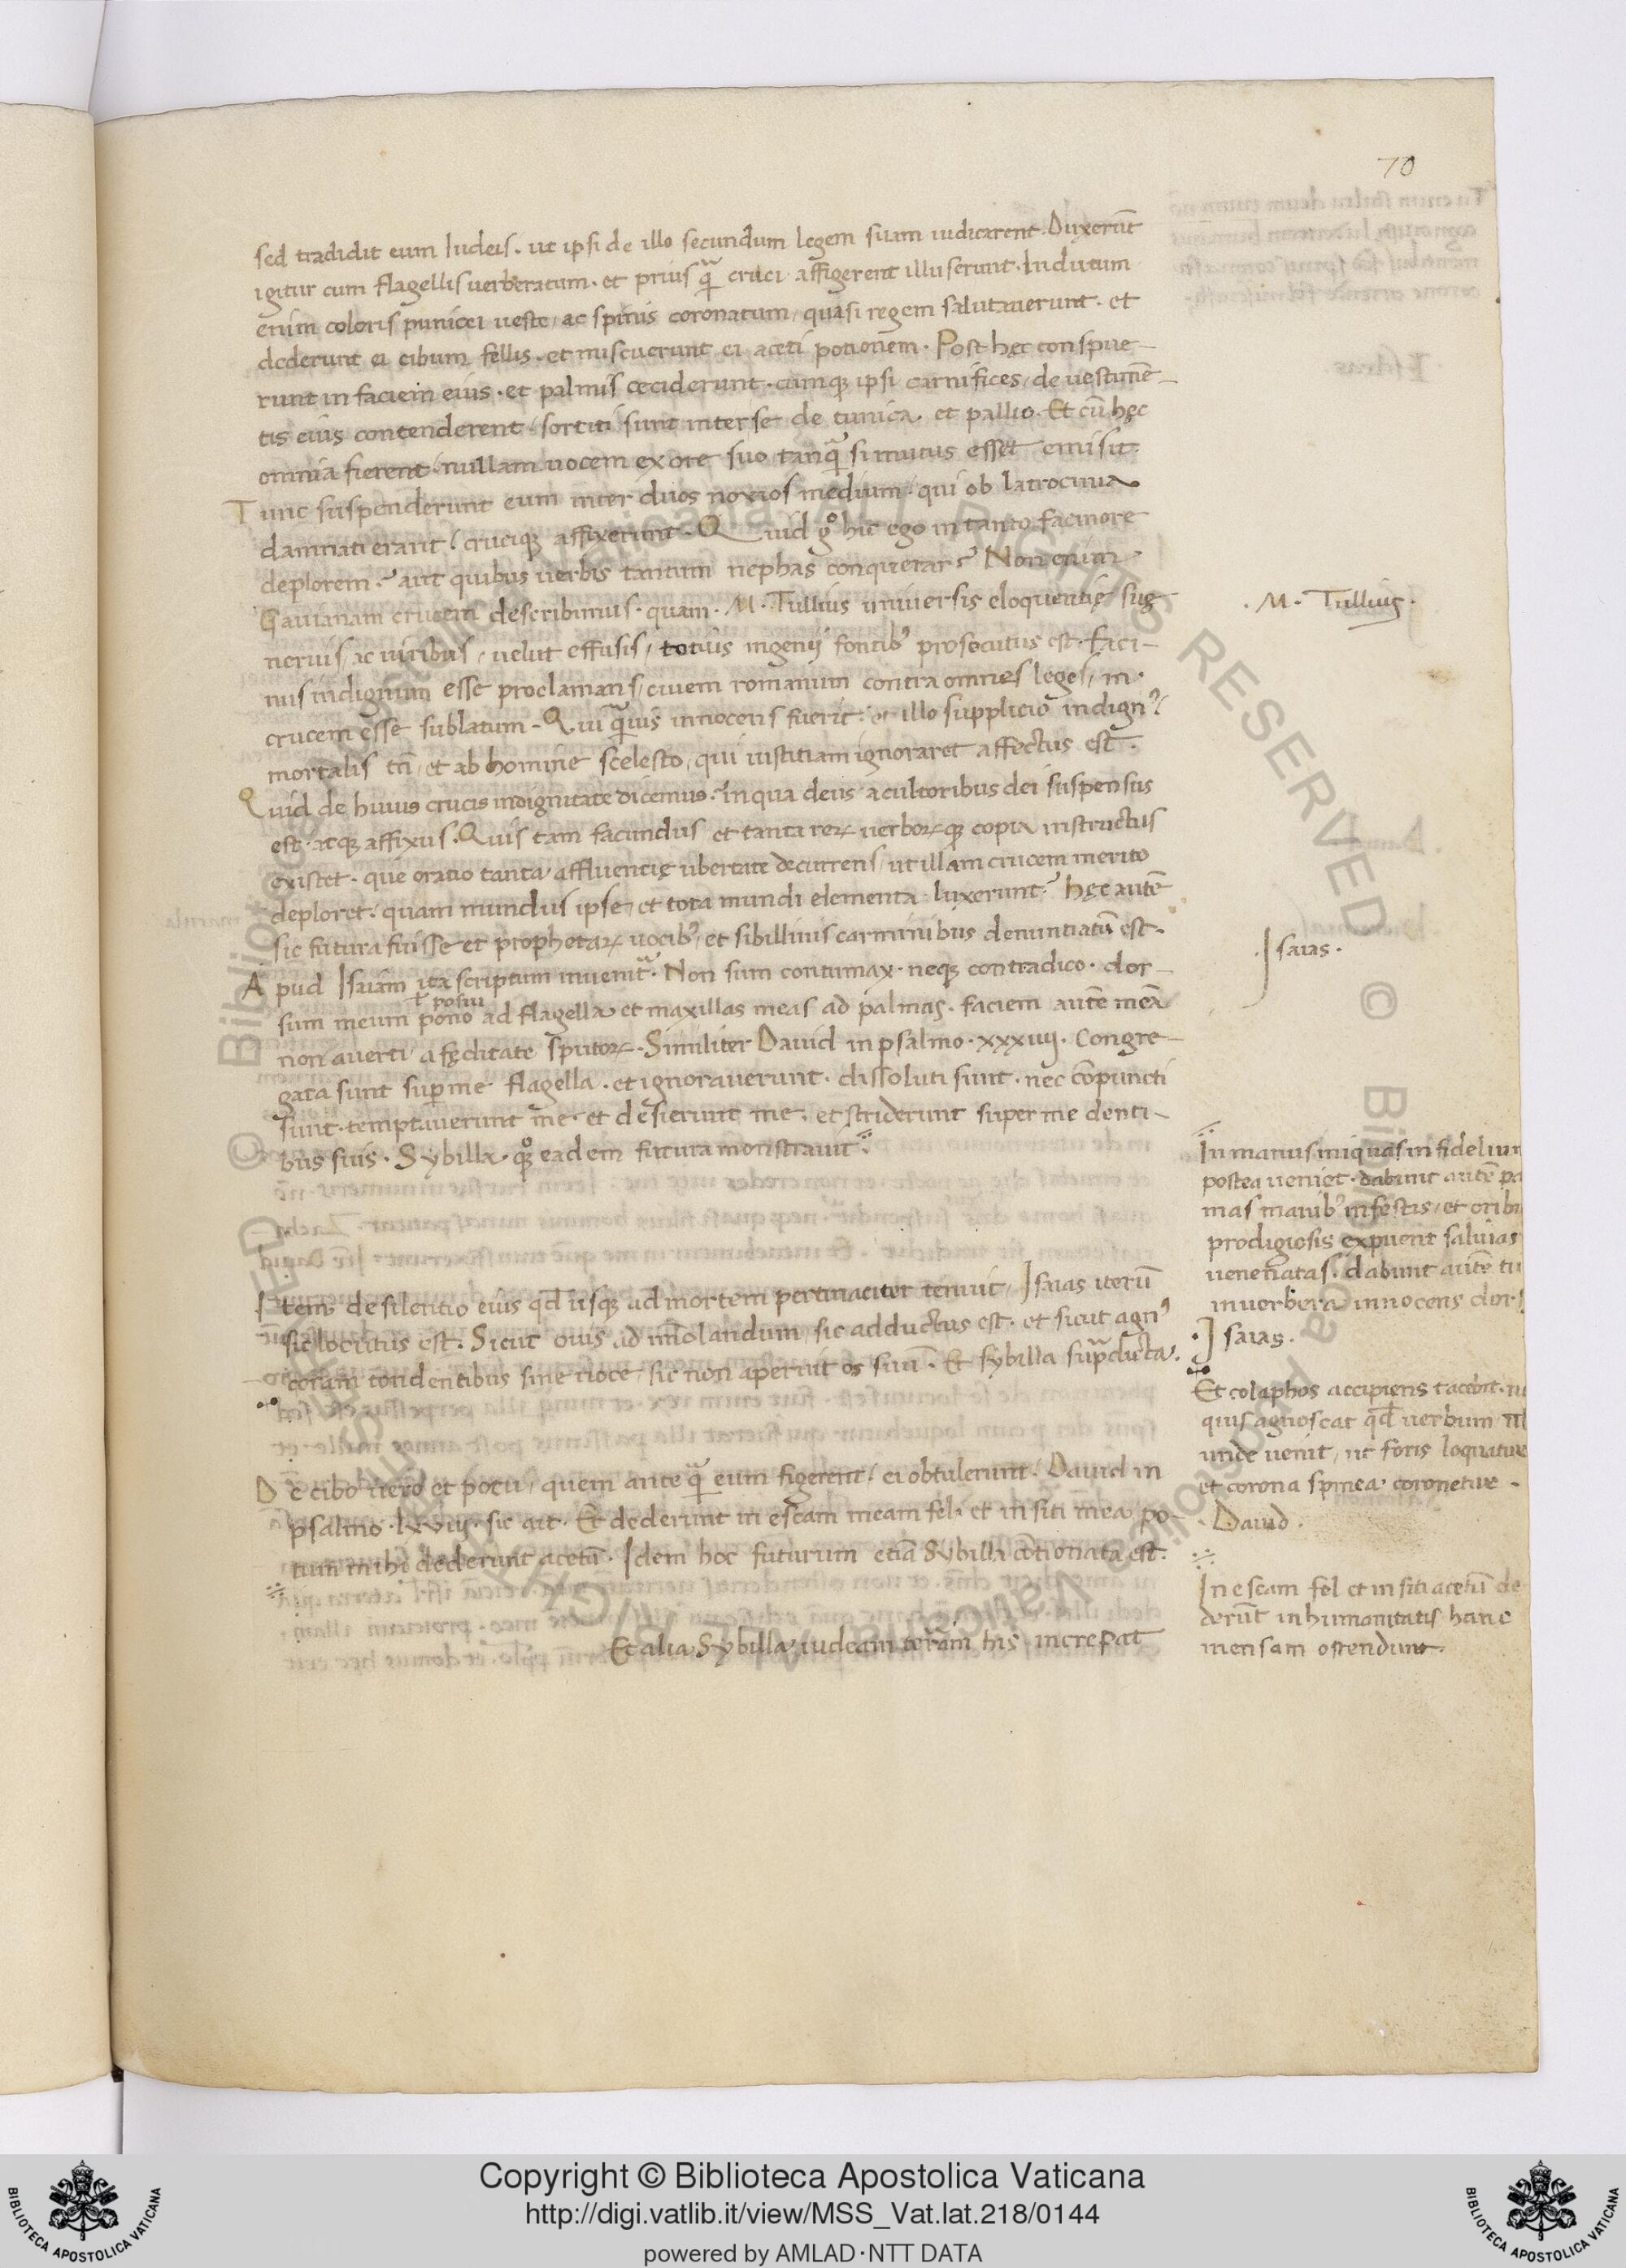 70
sed tradidit eum Iudeis . ut ipsi de illo secundum legem suam iudicarent . Duxerūt
igitur cum flagellis uerberatum . et prius qᷓ cruci affigerent illuserunt . Indutum
enim coloris punicei ueste / ac spinis coronatum / quasi regem salutauerunt . et
dederunt ei cibum fellis . et miscuerunt ei aceti potionem . Post hęc conspue-
runt in faciem eius . et palmis ceciderunt . cumqꝫ ipsi carnifices / de uestimē-
tis eius contenderent / sortiti sunt inter se de tunica . et pallio . Et cū hęc
omnia fierent / nullam uocem ex ore suo tanqᷓ si mutus esset emisit .
Tunc suspenderunt eum inter duos noxios medium . qui ob latrocinia
damnati erant / cruciqꝫ affixerunt . Quid gͦ hic ego in tanto facinore
deplorem ? aut quibus uerbis tantum nephas conquerar ? Non enim
Gauianam crucem describimus . quam . M . Tullius uniuersis eloquentię suę
neruis / ac uiribus / uelut effusis / totius ingenij fontibꝰ prosecutus est . Faci-
nus indignum esse proclamans / ciuem romanum contra omnes leges / in
crucem esse sublatum . Qui qᷓuis innocens fuerit / et illo supplicio indignꝰ /
mortalis tn̄ / et ab homine scelesto / qui iustitiam ignoraret affectus est .
Quid de huius crucis indignitate dicemus . In qua deus a cultoribus dei suspensus
est . atqꝫ affixus . Quis tam facundus et tanta reꝝ uerboꝝqꝫ copia instructus
existet . que oratio tanta affluentię ubertate decurrens / ut illam crucem merito
deploret . quam mundus ipse / et tota mundi elementa luxerunt ? hęc autē
sic futura fuisse et prophetaꝝ uocibꝰ / et sibillinis carminibus denuntiatū est .
Apud Isaiam ita scriptum inuenitᷓ . Non sum contumax . neqꝫ contradico . dor-
ɫ posui
sum meum pono ad flagella et maxillas meas ad palmas . faciem autē meā
non auerti a fęditate sputoꝝ . Similiter Dauid in psalmo . xxxiiij . Congre-
gata sunt suꝑ me flagella . et ignorauerunt . dissoluti sunt . nec cōpuncti
sunt . temptauerunt me . et deserierunt me . et striderunt super me denti-
bus suis . Sybilla . qꝫͦ eadem futura monstrauit .
Item de silentio eius qd̄ usqꝫ ad mortem pertinaciter tenuit / Isaias iterū
sic locutus est . Sicut ouis ad im̄olandum / sic adductus est . et sicut agnꝰ
coram tondentibus sine uoce / sic non aperuit os suū . Et sybilla supᷓdicta .
De cibo uero et potu / quem ante qᷓ eum figerent / ei obtulerunt / Dauid in
psalmo . lxviij . sic ait . Et dederunt in escam meam fel . et in siti mea po-
tum mihi dederunt acetū . Idem hoc futurum etiā Sybilla cōtionata est .
Et alia Sybilla iudeam terram his increpat
. M . Tullius .
. Isaias .
In manus iniquas infidelium
postea ueniet . dabunt autē pa
mas manibꝰ infestis / et oribu
prodigiosis expuent saliuas
uenenatas . dabunt autē tu
in uerbera innocens dors
. Isaias .
Et colaphos accipiens tacebit . n
quis agnoscat qd̄ uerbum / ul
unde uenit / ut foris loquatur
et corona spinea coronetur .
. Dauid .
In escam fel et in siti acetū de
derūt inhumanitatis hanc
mensam ostendunt .
Copyright © Biblioteca Apostolica Vaticana
http://digi.vatlib.it/view/MSS_Vat.lat.218/0144
powered by AMLAD·NTT DATA
BIBLIOTECA APOSTOLICA VATICANA
BIBLIOTECA APOSTOLICA VATICANA